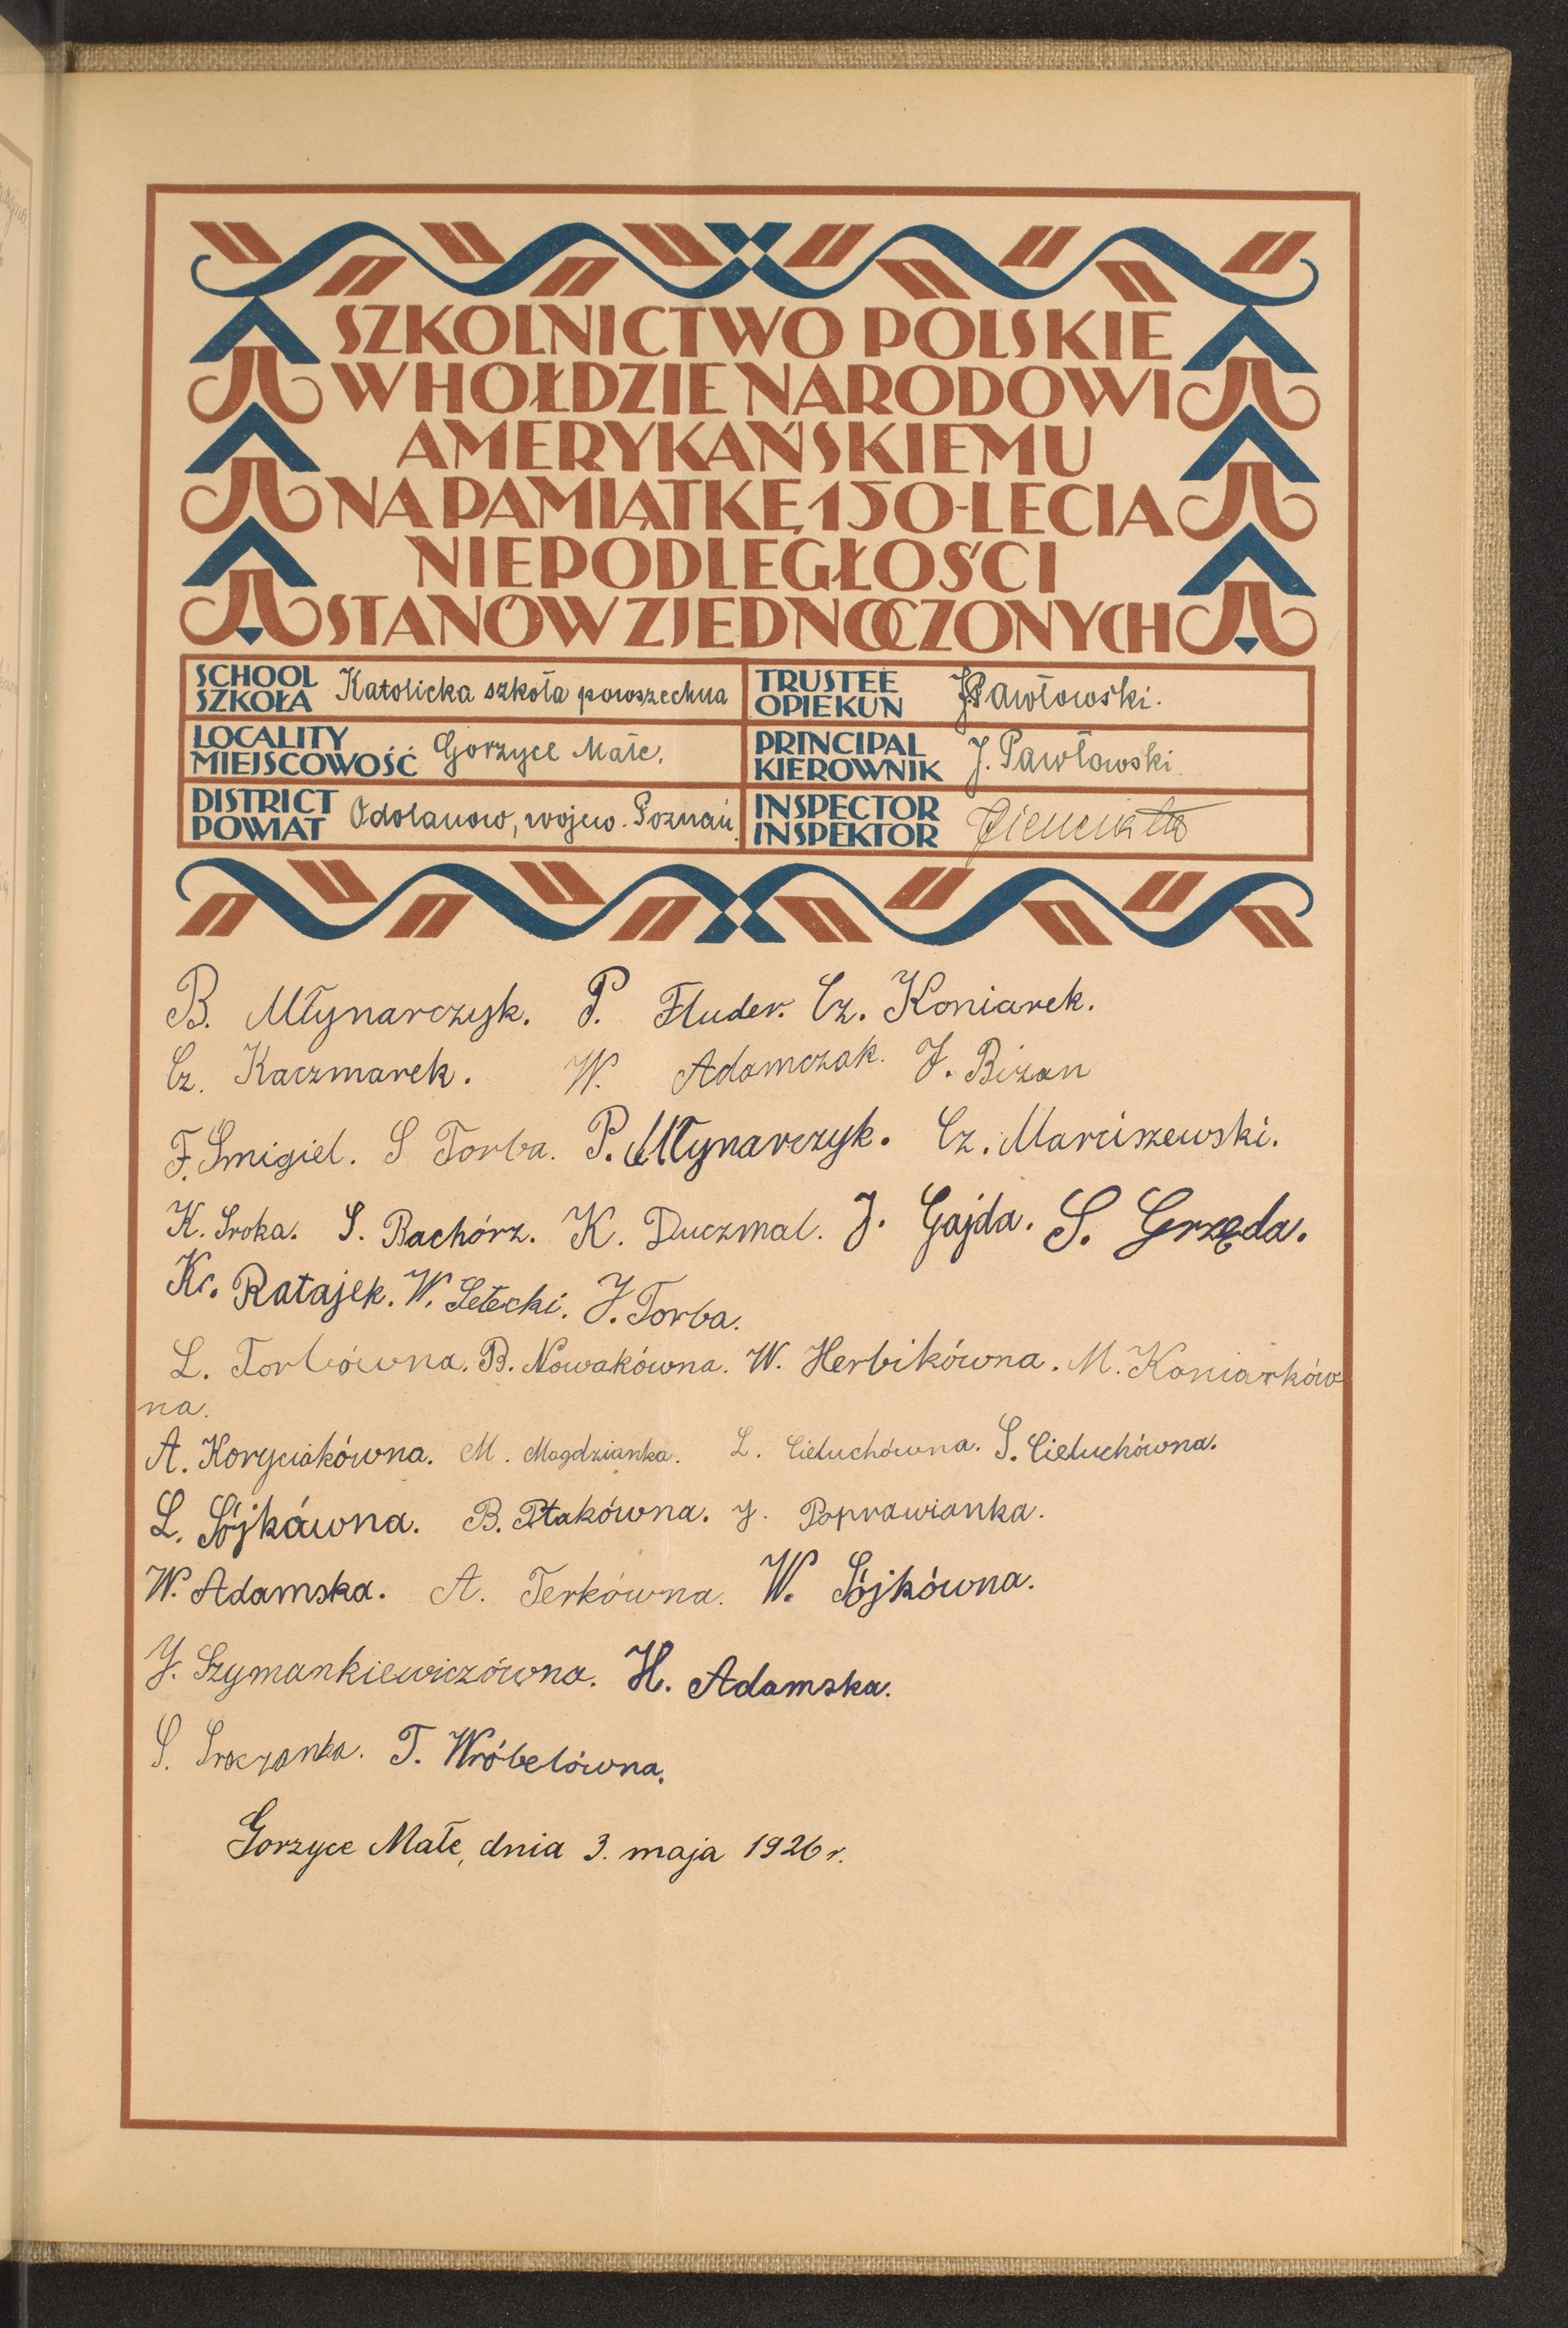 SZKOLNICTWO POLSKIE
W HOŁDZIE NARODOWI
AMERYKAŃSKIEMU
NA PAMIĄTKĘ 150-LECIA
NIEPODLEGŁOŚCI
STANÓW ZJEDNOCZONYCH
SCHOOL
SZKOŁA Katolicka szkoła powszechna
TRUSTEE
OPIEKUN J. Pawłowski.
LOCALITY
MIEJSCOWOŚĆ Gorzyce Małe.
PRINCIPAL
KIEROWNIK J. Pawłowski
DISTRICT
POWIAT Odolanow, wojew. Poznań.
INSPECTOR
INSPEKTOR
B. Młynarczyk. P. Fluder. Cz. Koniarek.
Cz. Kaczmarek. W. Adamczak. J. Bizan
F. Smigiel. S Torba. P. Młynarczyk. Cz. Marciszewski.
K. Sroka. S. Bachórz. K. Duczmal. J. Gajda. S. Grzęda.
Kr. Ratajek. W. Setecki. J. Torba.
L. Torbówna. B. Nowakówna. W. Herbikówna. M. Koniarków
na.
A. Koryciakówna. M. Magdzianka. L. Cieluchówna. S. Cieluchówna.
L. Sójkówna. B. Ptakówna. J. Poprawianka.
W. Adamska. A. Terkówna. W. Sójkówna.
J. Szymankiewiczówna. H. Adamska.
S. Sroczanka. T. Wróbelówna.
Gorzyce Małe, dnia 3. maja 1926 r.